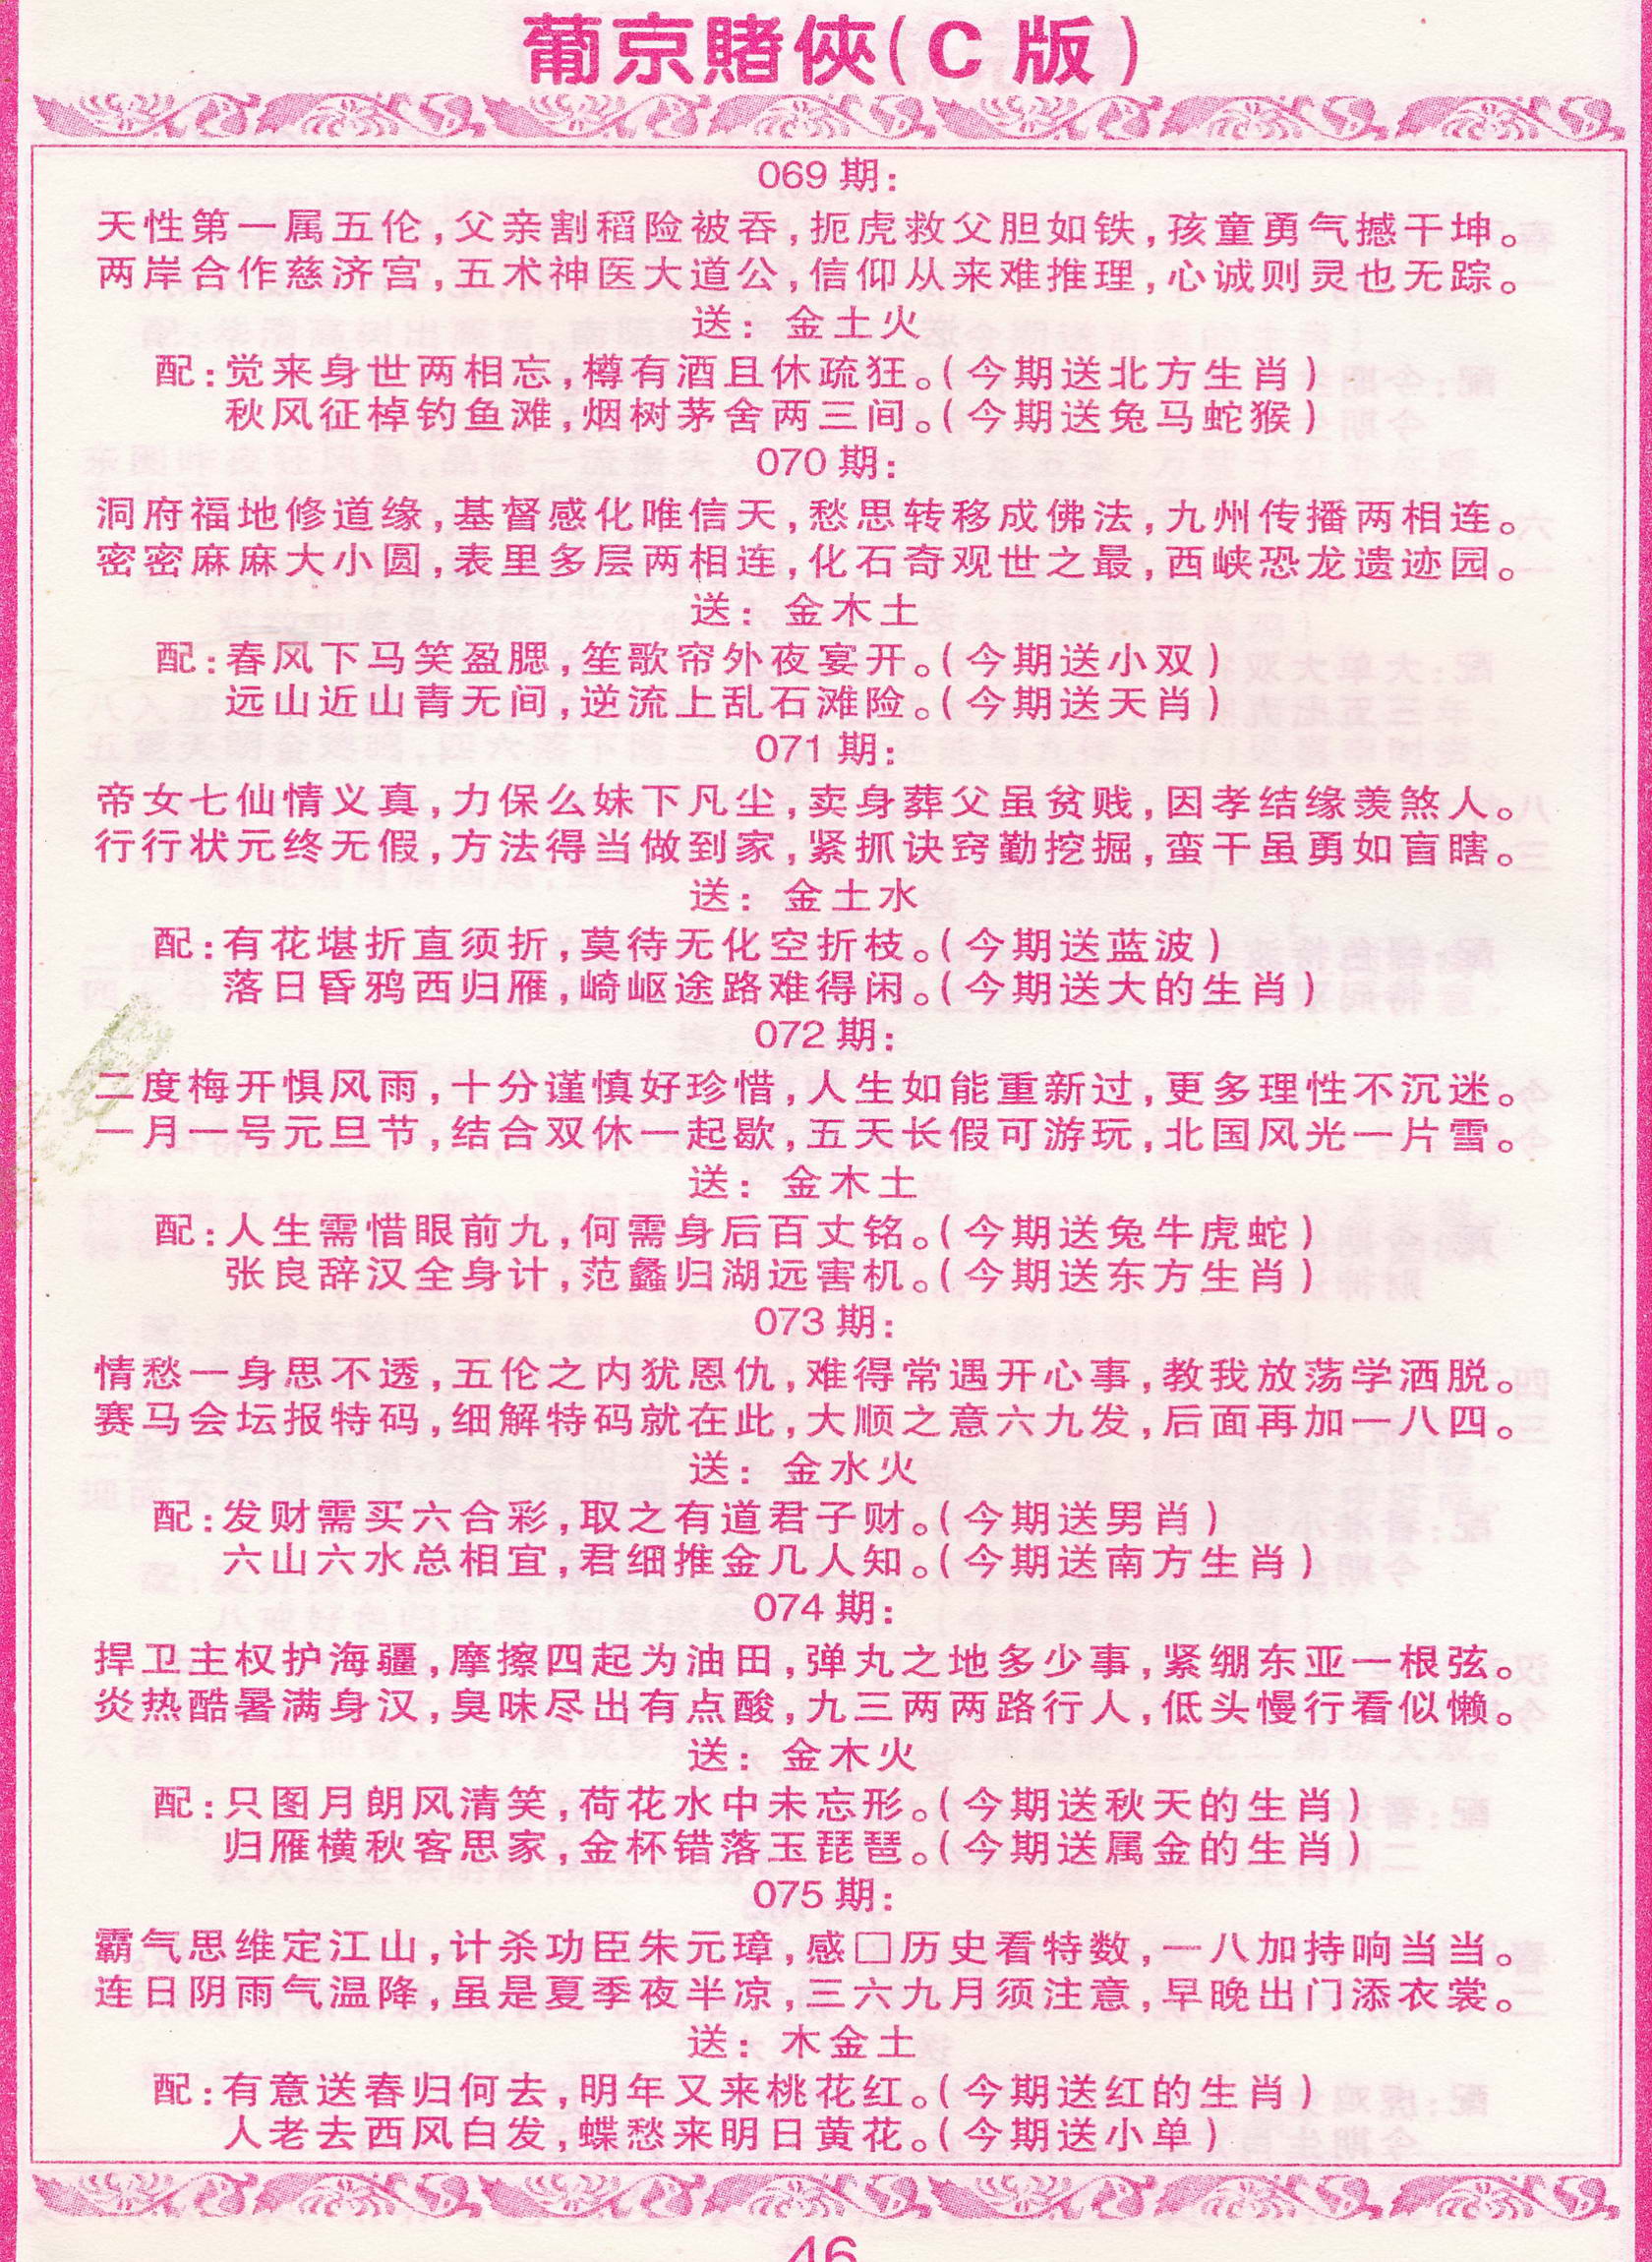 葡京賭俠(C版)
069期:
天性第一属五伦,父亲割稻险被吞,扼虎救父胆如铁,孩童勇气撼干坤。
两岸合作慈济宫,五术神医大道公,信仰从来难推理,心诚则灵也无踪。
送: 金土火
配:觉来身世两相忘,樽有酒且休疏狂。(今期送北方生肖)
秋风征棹钓鱼滩,烟树茅舍两三间。(今期送兔马蛇猴)
070期:
洞府福地修道缘,基督感化唯信天,愁思转移成佛法,九州传播两相连。
密密麻麻大小圆,表里多层两相连,化石奇观世之最,西峡恐龙遗迹园。
送: 金木土
配:春风下马笑盈腮,笙歌帘外夜宴开。(今期送小双)
远山近山青无间,逆流上乱石滩险。(今期送天肖)
071期:
帝女七仙情义真,力保么妹下凡尘,卖身葬父虽贫贱,因孝结缘羡煞人。
行行状元终无假,方法得当做到家,紧抓诀窍勤挖掘,蛮干虽勇如盲瞎。
送: 金土水
配:有花堪折直须折,莫待无化空折枝。(今期送蓝波)
落日昏鸦西归雁,崎岖途路难得闲。(今期送大的生肖)
072期:
二度梅开惧风雨,十分谨慎好珍惜,人生如能重新过,更多理性不沉迷。
一月一号元旦节,结合双休一起歇,五天长假可游玩,北国风光一片雪。
送: 金木土
配:人生需惜眼前九,何需身后百丈铭。(今期送兔牛虎蛇)
张良辞汉全身计,范蠡归湖远害机。(今期送东方生肖)
073期:
情愁一身思不透,五伦之内犹恩仇,难得常遇开心事,教我放荡学洒脱。
赛马会坛报特码,细解特码就在此,大顺之意六九发,后面再加一八四。
送: 金水火
配:发财需买六合彩,取之有道君子财。(今期送男肖)
六山六水总相宜,君细推金几人知。(今期送南方生肖)
074期:
捍卫主权护海疆,摩擦四起为油田,弹丸之地多少事,紧绷东亚一根弦。
炎热酷暑满身汉,臭味尽出有点酸,九三两两路行人,低头慢行看似懒。
送: 金木火
配:只图月朗风清笑,荷花水中未忘形。(今期送秋天的生肖)
归雁横秋客思家,金杯错落玉琵琶。(今期送属金的生肖)
075期:
霸气思维定江山,计杀功臣朱元璋,感□历史看特数,一八加持响当当。
连日阴雨气温降,虽是夏季夜半凉,三六九月须注意,早晚出门添衣裳。
送: 木金土
配:有意送春归何去,明年又来桃花红。(今期送红的生肖)
人老去西风白发,蝶愁来明日黄花。(今期送小单)
46